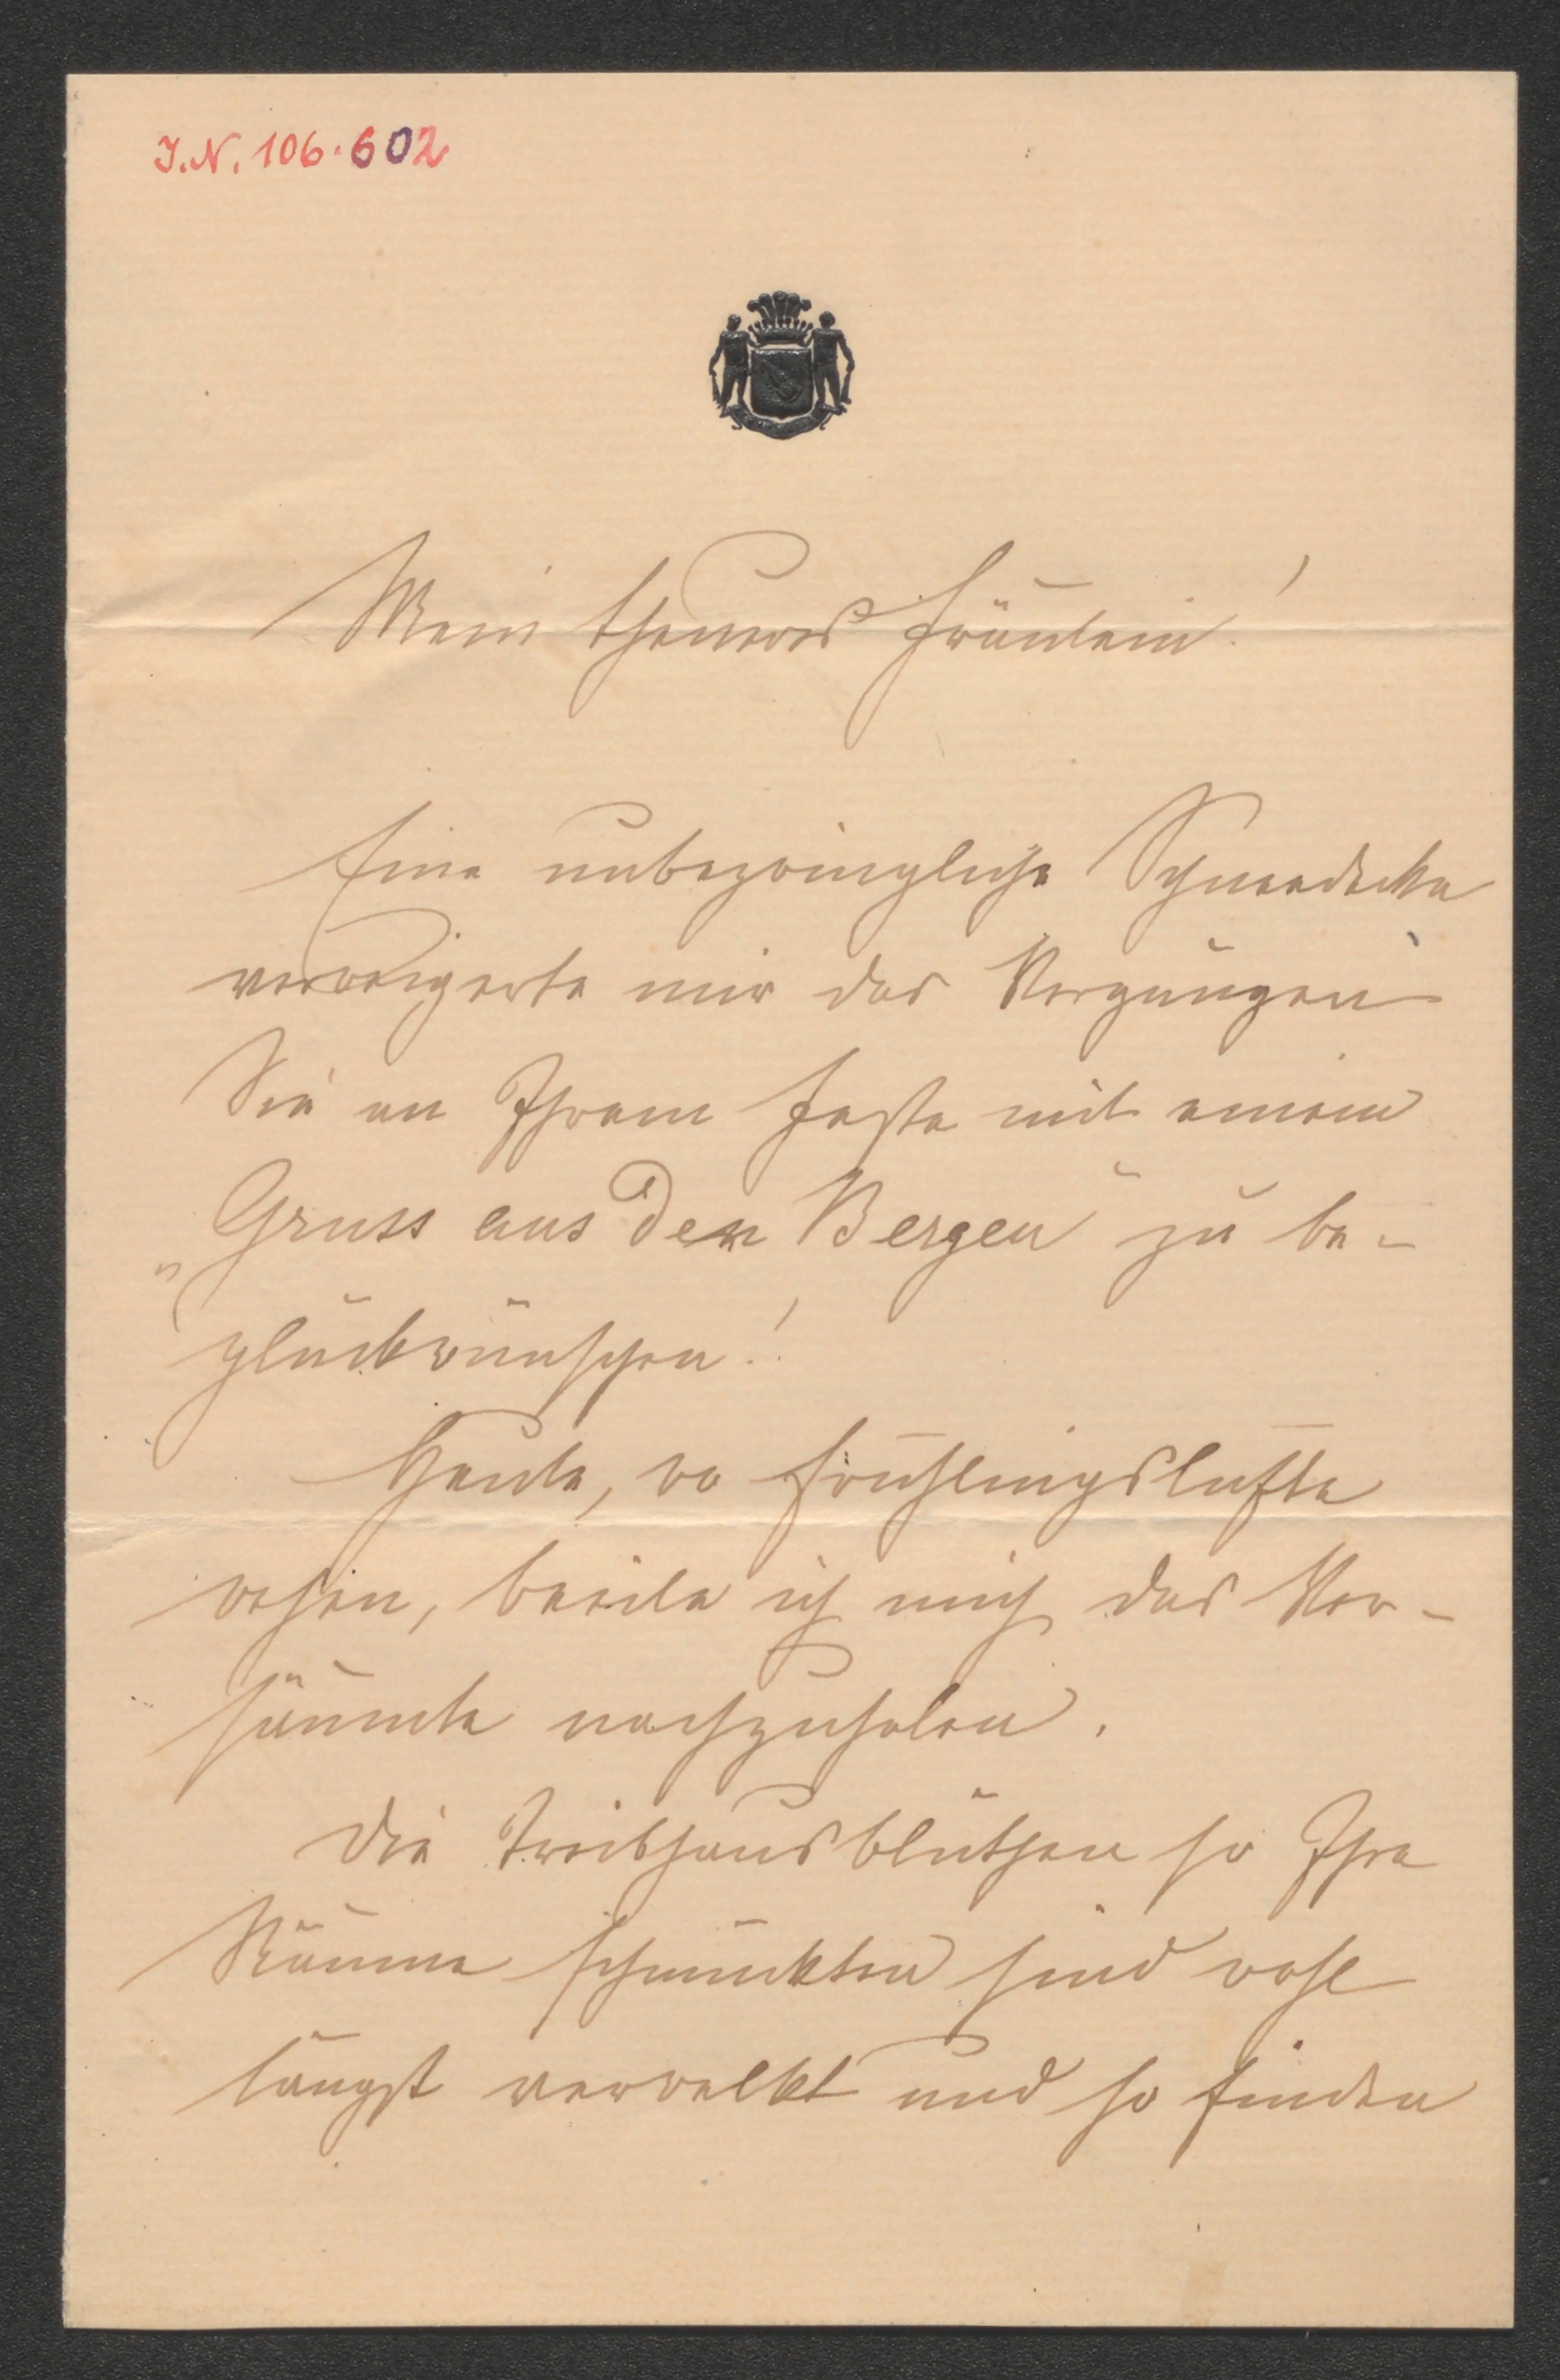 I.N. 106.602
Mein theueres Fräulein!
Eine unbezwingliche Schneedecke
verweigerte mir das Vergnügen
Sie an Ihrem Feste mit einem
„Gruss aus den Bergen" zu be-
glückwünschen!
Heute, wo Frühlingslüfte
wehen, beeile ich mich das Ver-
säumte nachzuholen.
Die Treibhausblüthen so Ihre
Räume schmückten sind wohl
längst verwelkt und so finden